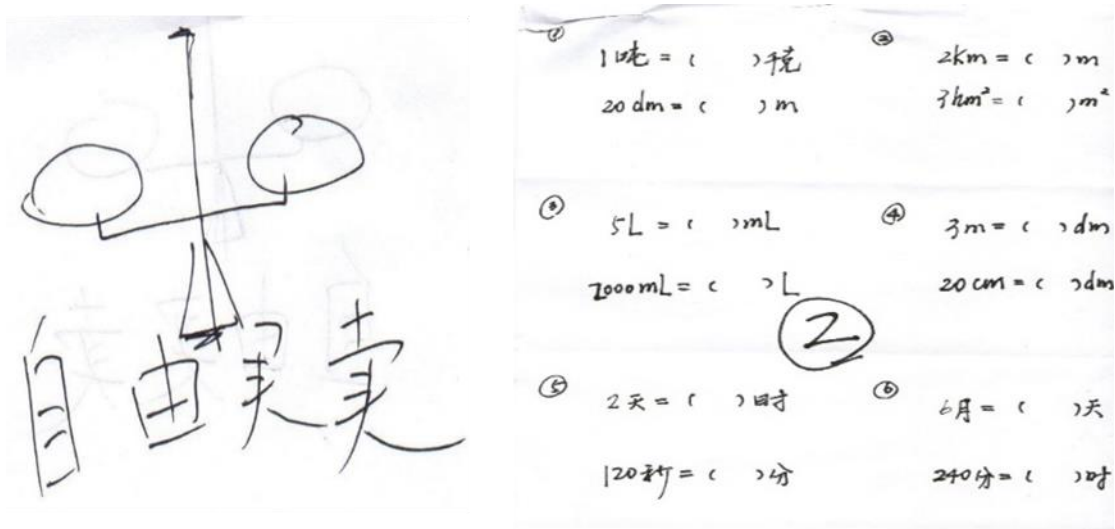 自由
①
1吨 = ( )千克
20 dm = ( ) m
②
2km = ( ) m
3hm² = ( ) m²
③
5L = ( ) mL
7000mL = ( ) L
④
3m = ( ) dm
20 cm = ( ) dm
②
⑤
2天 = ( ) 时
120秒 = ( ) 分
⑥
6月 = ( ) 天
240分 = ( ) 时